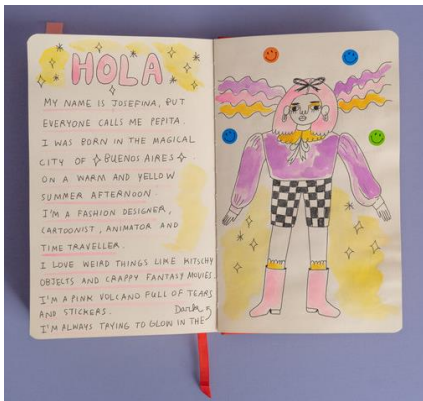 HOLA
MY NAME IS JOSEFINA, BUT
EVERYONE CALLS ME PEPITA.
I WAS BORN IN THE MAGICAL
CITY OF BUENOS AIRES
ON A WARM AND YELLOW
SUMMER AFTERNOON
I'M A FASHION DESIGNER,
CARTOONIST, ANIMATOR AND
TIME TRAVELLER.
I LOVE WEIRD THINGS LIKE KITSCHY
OBJECTS AND CRAPPY FANTASY MOVIES.
I'M A PINK VOLCANO FULL OF TEARS
AND STICKERS.
I'M ALWAYS TRYING TO GLOW IN THE
Dark